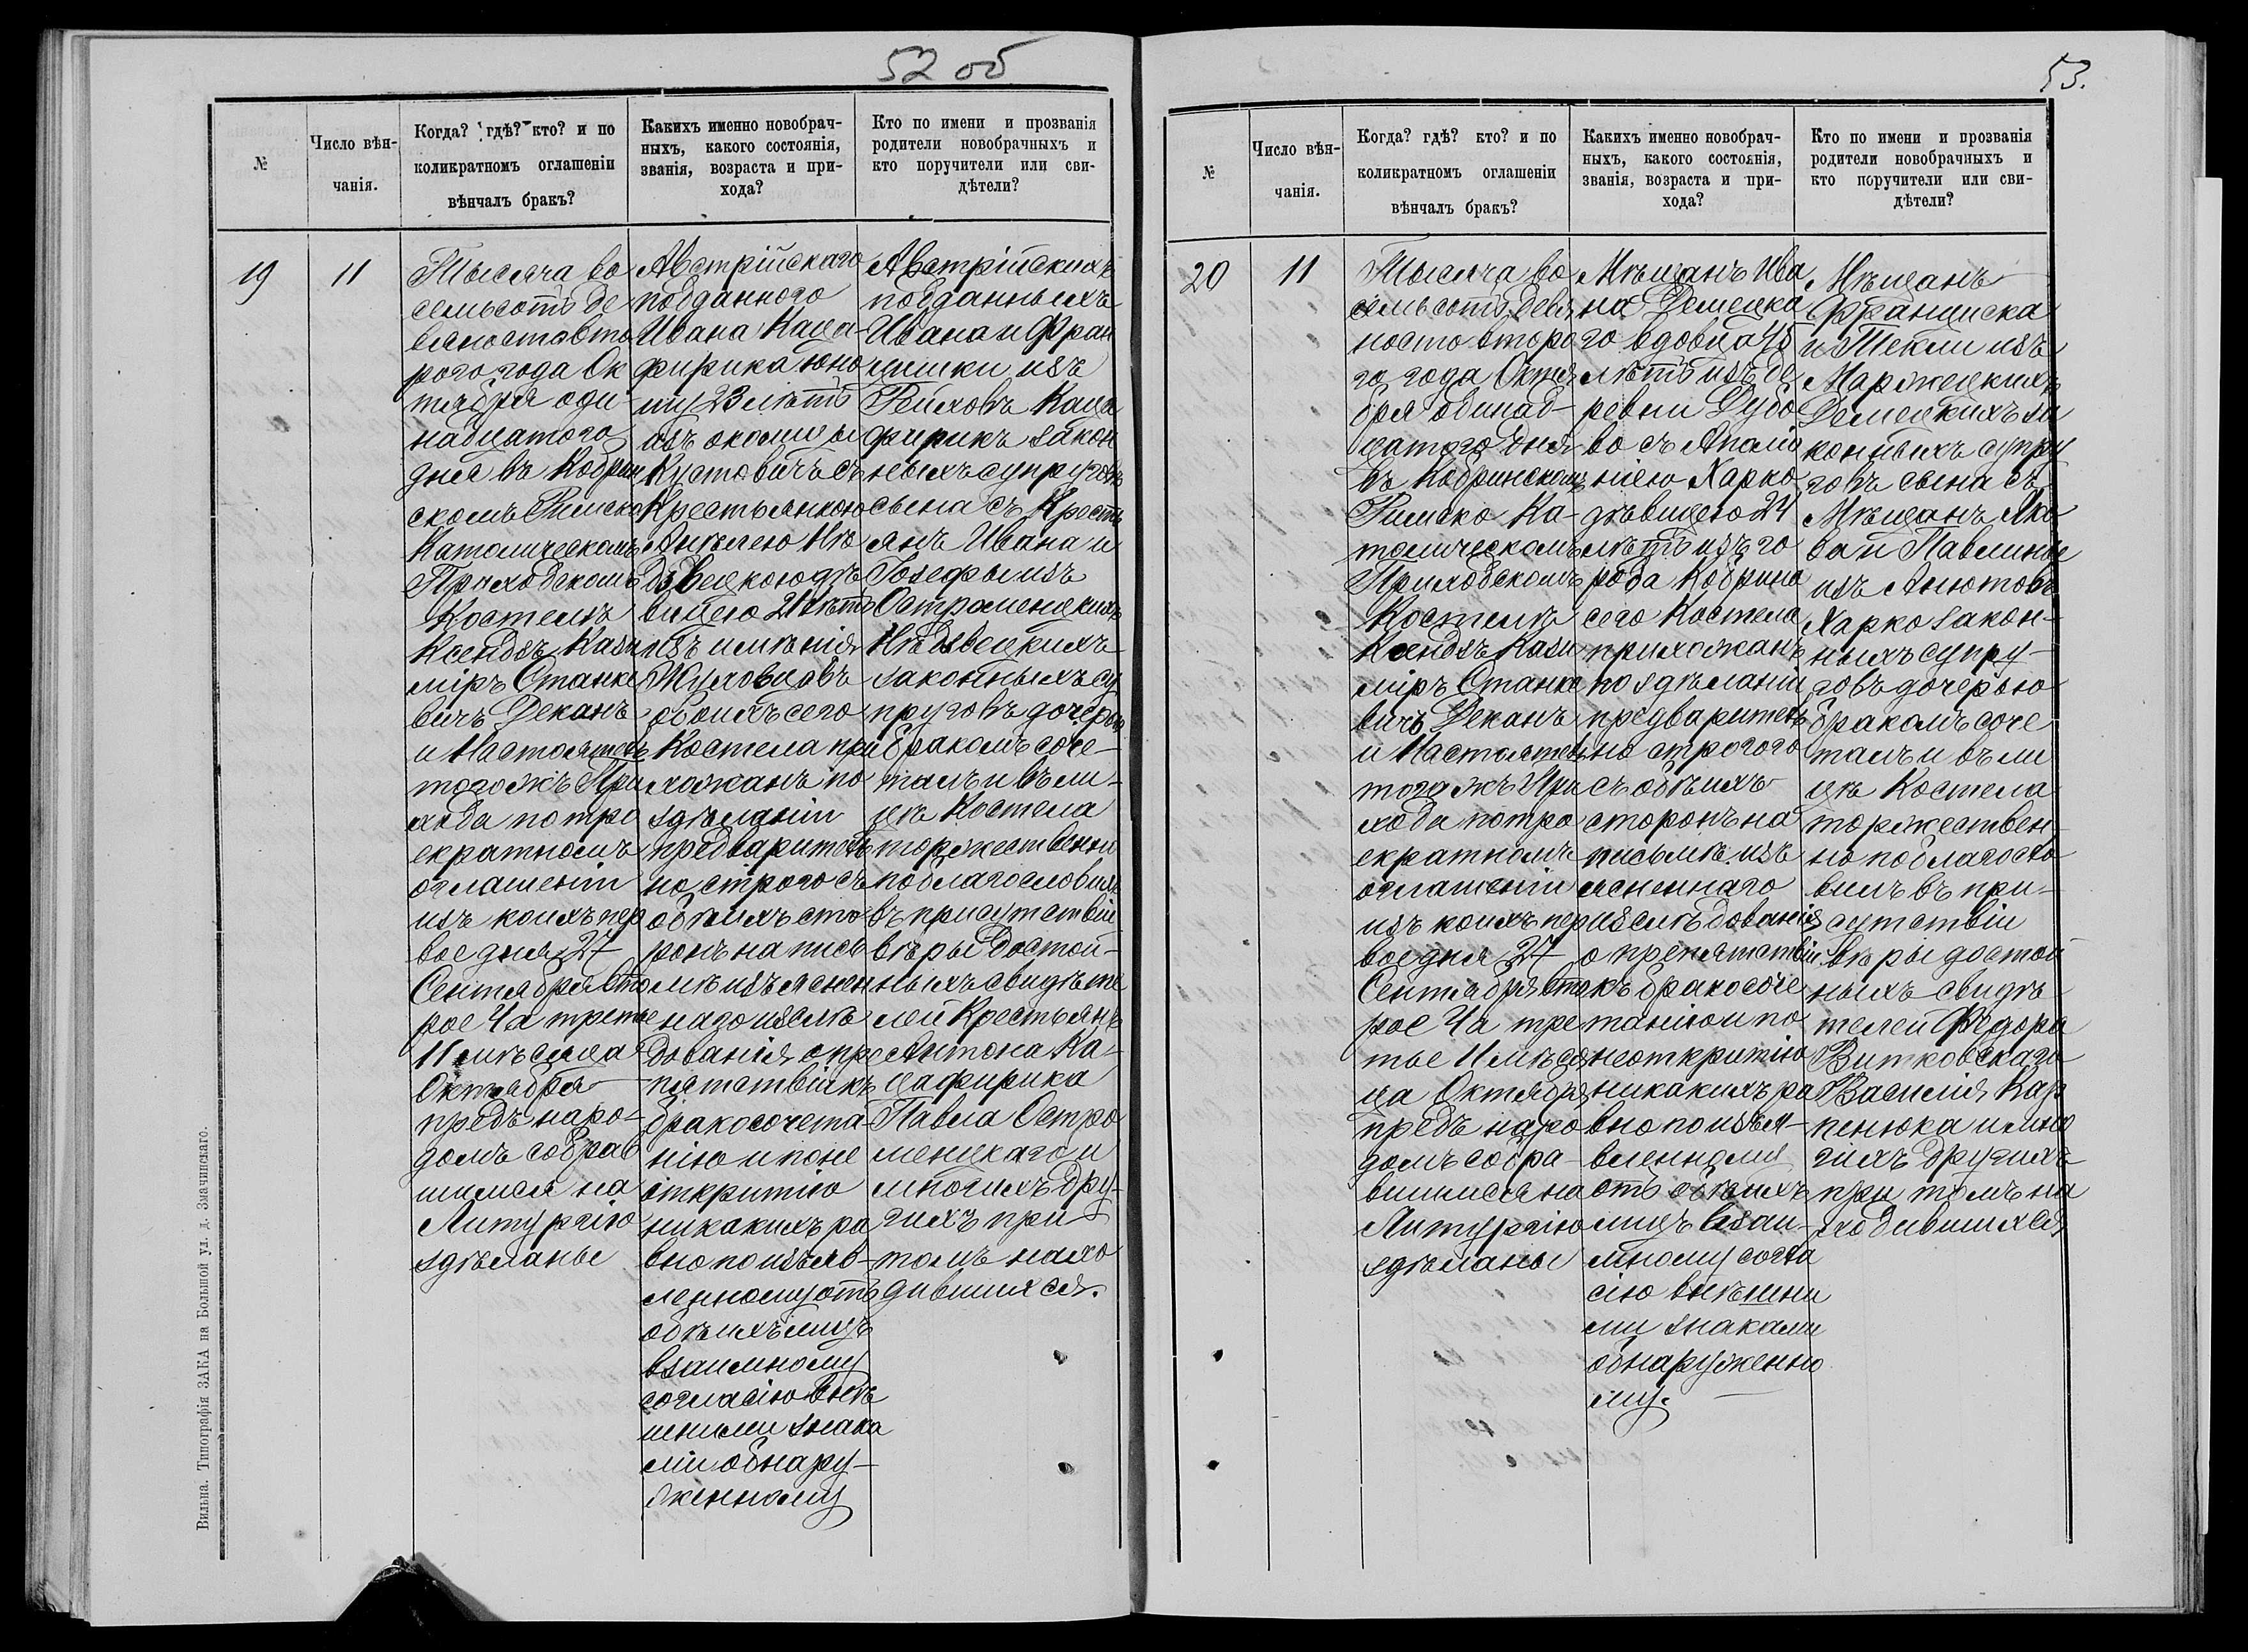 52 об
№
Число вѣн-
чанія.
Когда? гдѣ? кто? и по
коликратномъ оглашеніи
вѣнчалъ бракъ?
Какихъ именно новобрач-
ныхъ, какого состоянія,
званія, возраста и при-
хода?
Кто по имени и прозванія
родители новобрачныхъ и
кто поручители или сви-
дѣтели?
19
11
Тысяча во
семьсотъ де
вяностовто
рого года Ок
тября оди
надцатого
дня въ Кобрин
скомъ Римско
Католическомъ
Приходскомъ
Костелѣ
Ксендзъ Кази
міръ Станке
вичъ Деканъ
и Настоятель
тогожъ При
хода по тро
екратномъ
оглашеніи
изъ коихъ пер
вое дня 27
Сентября вто
рое 4 а третье
11 мѣсяца
Октября
предъ наро-
домъ собрав
шимся на
Литургію
здѣланы
Австрійскаго
подданного
Ивана Каца-
фирика юно
шу 23 лѣтъ
изъ околицы
Кустовичъ съ
Крестьянкою
Анѣлею Нѣ
дзвецкою дѣ
вицею 21 лѣтъ
изъ имѣнія
Жуховцовъ
обоихъ сего
Костела при
хожанъ по
здѣланіи
предваритель
но строго съ
обѣихъ сто
ронъ на пись
мѣ изъяснен
наго изслѣ
дованія о пре
пятствіи къ
бракосочета-
нію и поне
открытію
никакихъ ра
вно по изъяв-
ленному отъ
обѣихъ лицъ
взаимному
согласію внѣ
шними знака
ми обнару-
женному
Австрійскихъ
подданныхъ
Ивана и Фран
цишки изъ
Рейховъ Каца
фирикъ закон
ныхъ супруговъ
сына съ Кресть
янъ Ивана и
Іозефы изъ
Остроменцкихъ
Нѣдзвецкихъ
законныхъ су
пруговъ дочерью
бракомъ соче-
талъ и въ ли-
цѣ Костела
торжественно
поблагословилъ
въ присутствіи
вѣры достой-
ныхъ свидѣте
лей Крестьянъ
Антона Ка-
цафирика
Павла Остро
менцкаго и
многихъ дру-
гихъ при
томъ нахо
дившихся.
Вильна. Типографія ЗАКА на Большой ул. д. Змачинскаго.
53.
№
Число вѣн-
чанія.
Когда? гдѣ? кто? и по
коликратномъ оглашеніи
вѣнчалъ бракъ?
Какихъ именно новобрач-
ныхъ, какого состоянія,
званія, возраста и при-
хода?
Кто по имени и прозванія
родители новобрачныхъ и
кто поручители или сви-
дѣтели?
20
11
Тысяча во
семьсотъ девя
носто второ
го года Октя
бря одинад-
цатого дня
въ Кобринскомъ
Римско Ка-
толическомъ
Приходскомъ
Костелѣ
Ксендзъ Кази
міръ Станке
вичъ Деканъ
и Настоятель
тогожъ При
хода по тро
екратномъ
оглашеніи
изъ коихъ пер
вое дня 27
Сентября вто
рое 4 а тре
тье 11 мѣся
ца Октября
предъ наро
домъ собра-
вшимся на
Литургію
здѣланы
Мѣщанъ Ива
на Демецка
го вдовца 45
лѣтъ изъ де
ревни Дубо
во съ Аполіо
ніею Харко
дѣвицею 24
лѣтъ изъ го
рода Кобрина
сего Костела
прихожанъ
по здѣланіи
предваритель
но строгого
съ обѣихъ
сторонъ на
письмѣ изъ
ясненнаго
изслѣдованія
о препятствіи
къ бракосоче
танію и по
неоткрытію
никакихъ ра
вно по изъя-
вленному
отъ обѣихъ
лицъ взаи-
мному согла
сію внѣшни
ми знаками
обнаруженно
му.
Мѣщанъ
Францишка
и Теклі изъ
Маржецкихъ
Демецкихъ за
конныхъ супру
говъ сына съ
Мѣщанъ Яко
ва и Павлины
изъ Анютовъ
Харко закон-
ныхъ супру-
говъ дочерью
бракомъ соче
талъ и въ ли
цѣ Костела
торжествен
но поблагосло
вилъ въ при-
сутствіи
вѣры достой
ныхъ свидѣ
телей Федора
Витковскаго
Василія Кар
пенюка и мно
гихъ другихъ
при томъ на
ходившихся